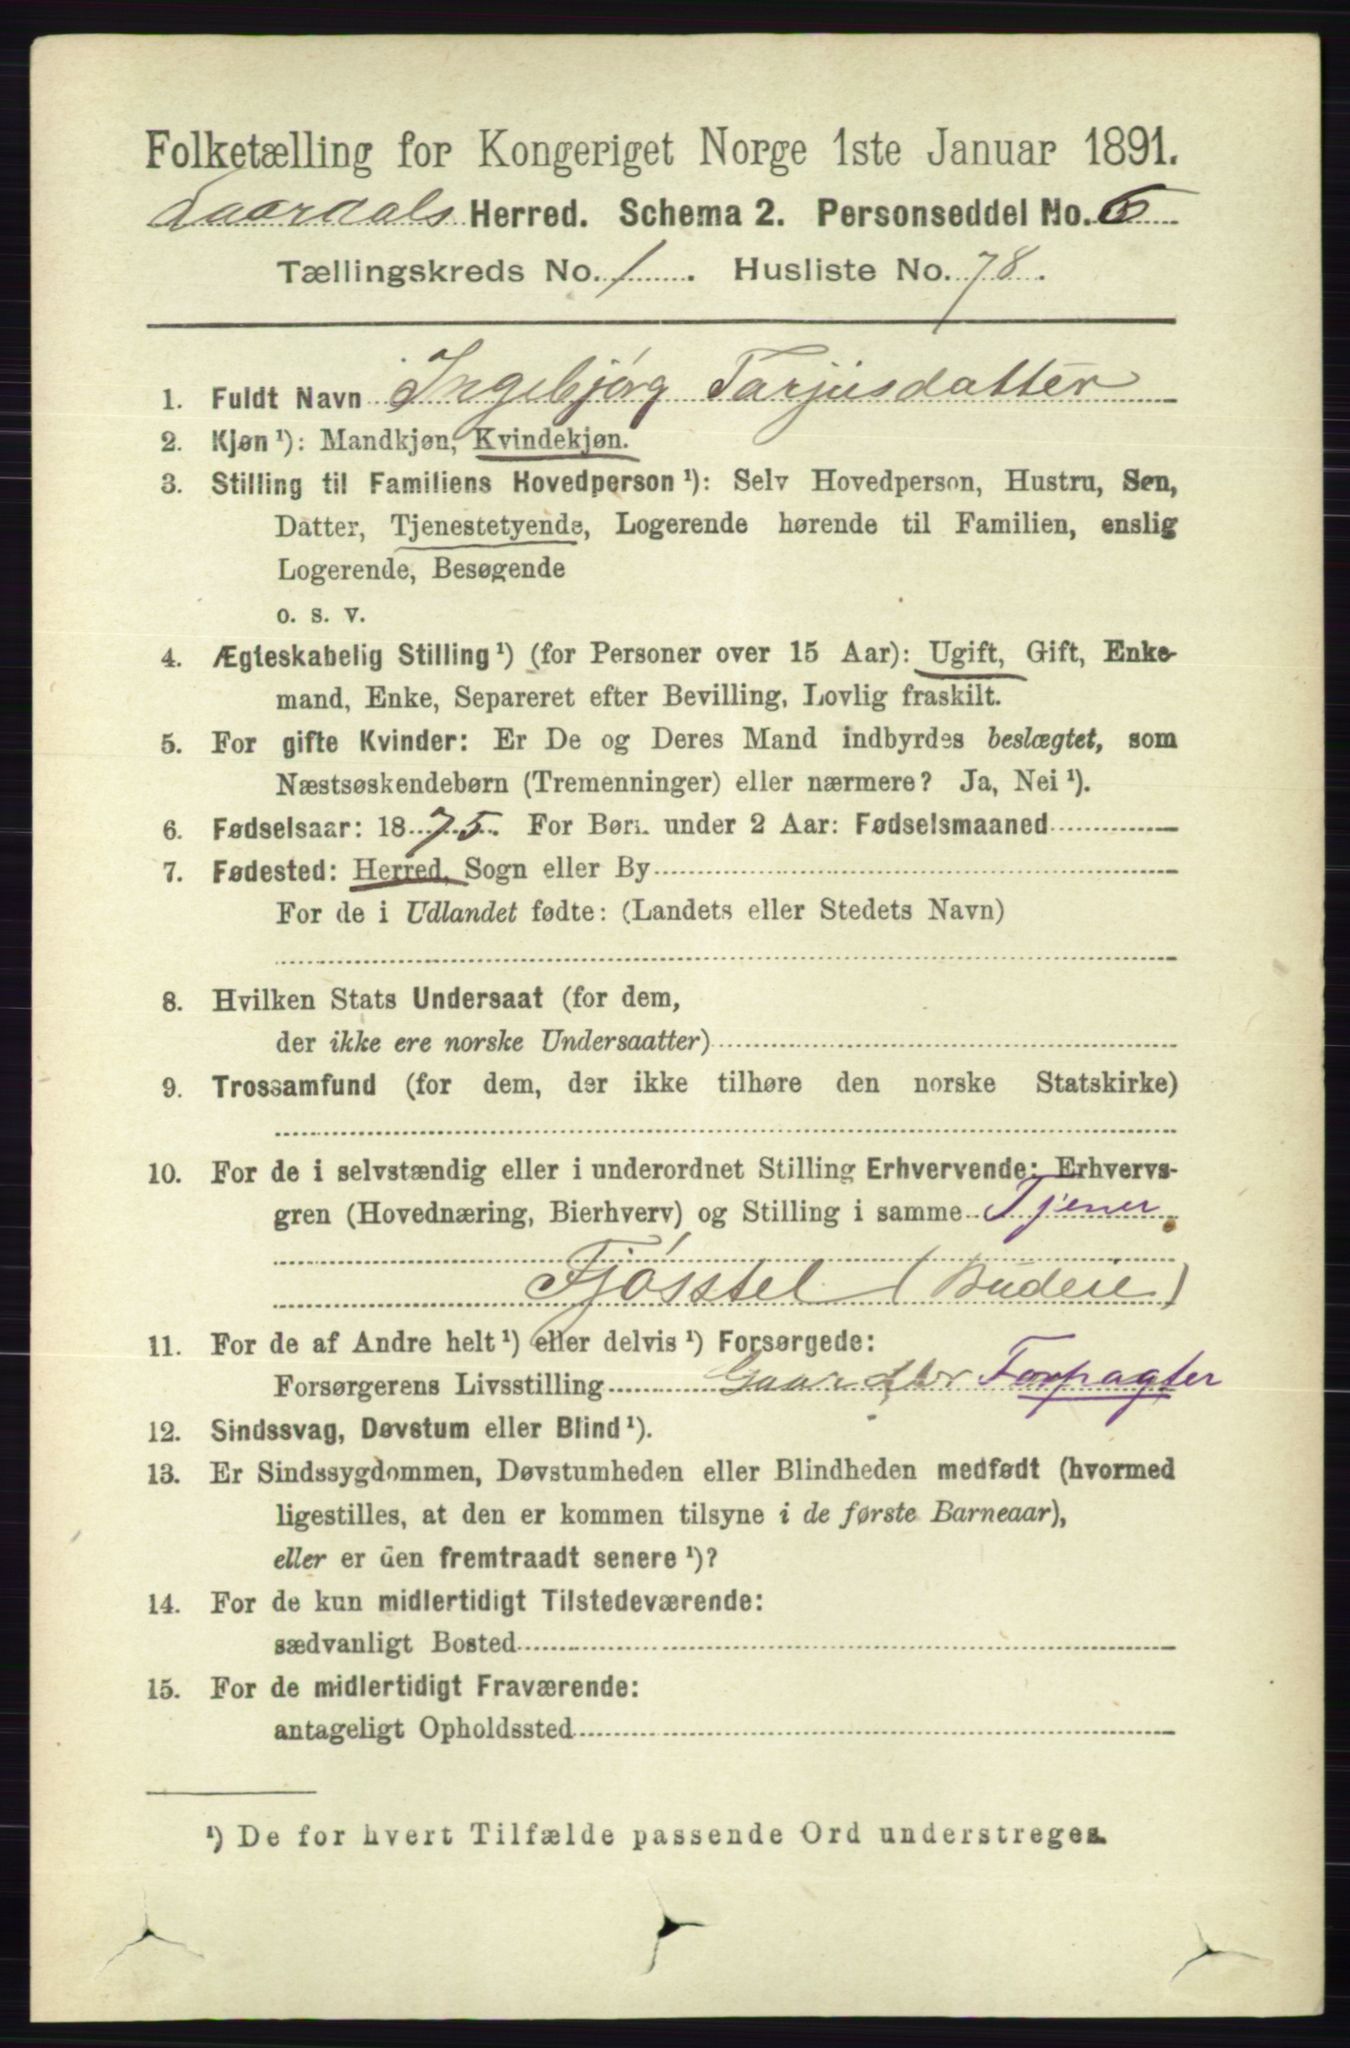 Folketælling for Kongeriget Norge 1ste Januar 1891.
Laardals Herred. Schema 2. Personseddel No. 6
Tællingskreds No. 1. Husliste No. 78.
1. Fuldt Navn Ingebjørg Tarjusdatter
2. Kjøn ¹): Mandkjøn, Kvindekjøn.
3. Stilling til Familiens Hovedperson ¹): Selv Hovedperson, Hustru, Søn,
Datter, Tjenestetyende, Logerende hørende til Familien, enslig
Logerende, Besøgende
o. s. v.
4. Ægteskabelig Stilling ¹) (for Personer over 15 Aar): Ugift, Gift, Enke-
mand, Enke, Separeret efter Bevilling, Lovlig fraskilt.
5. For gifte Kvinder: Er De og Deres Mand indbyrdes beslægtet, som
Næstsøskendebørn (Tremenninger) eller nærmere? Ja, Nei ¹).
6. Fødselsaar: 1875. For Børn under 2 Aar: Fødselsmaaned
7. Fødested: Herred, Sogn eller By
For de i Udlandet fødte: (Landets eller Stedets Navn)
8. Hvilken Stats Undersaat (for dem,
der ikke ere norske Undersaatter)
9. Trossamfund (for dem, der ikke tilhøre den norske Statskirke)
10. For de i selvstændig eller i underordnet Stilling Erhvervende: Erhvervs-
gren (Hovednæring, Bierhverv) og Stilling i samme Tjener
Fjósstel (Budeie)
11. For de af Andre helt ¹) eller delvis ¹) Forsørgede:
Forsørgerens Livsstilling Forpagter
12. Sindssvag, Døvstum eller Blind ¹).
13. Er Sindssygdommen, Døvstumheden eller Blindheden medfødt (hvormed
ligestilles, at den er kommen tilsyne i de første Barneaar),
eller er den fremtraadt senere ¹)?
14. For de kun midlertidigt Tilstedeværende:
sædvanligt Bosted
15. For de midlertidigt Fraværende:
antageligt Opholdssted
¹) De for hvert Tilfælde passende Ord understreges.